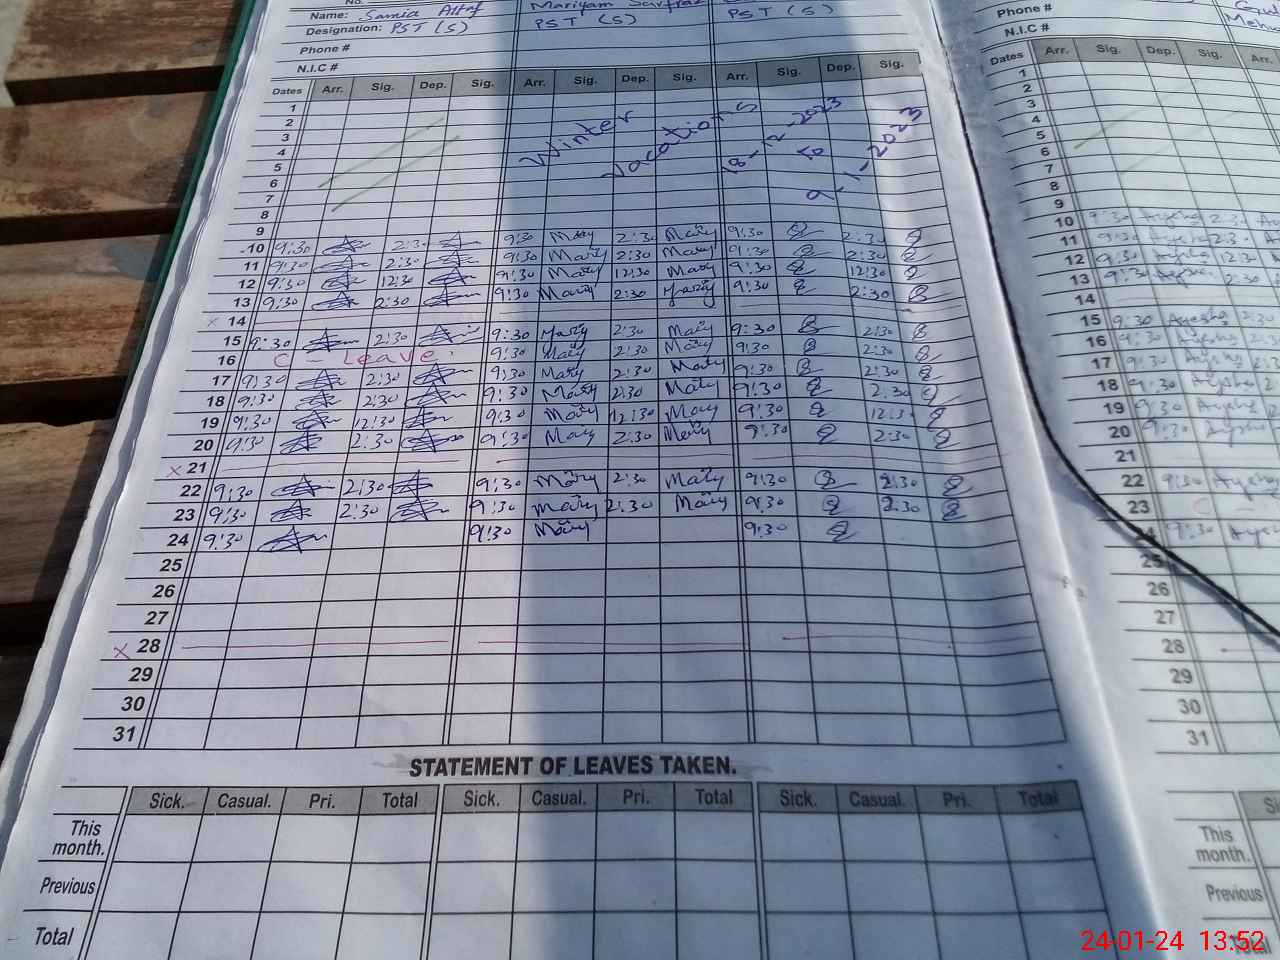 No.
Name: Samia Altaf Mariyam Sarfraz
Designation: PST (S) PST (S) PST (S)
Phone # Phone #
N.I.C # N.I.C #
Dates Arr. Sig. Dep. Sig. Arr. Sig. Dep. Sig. Arr. Sig. Dep. Sig. Dates Arr. Sig. Dep. Sig. Arr.
1 1
2 2
3 Winter Vacations 18-12-2023 3
4 to 4
5 9-1-2023 5
6 6
7 7
8 8
9 9
10 9:30 2:30 9:30 Mary 2:30 Mary 9:30 2:30 10 9:30 Ayesha 2:30
11 9:30 2:30 9:30 Mary 2:30 Mary 9:30 2:30 11 9:30 Ayesha 2:30
12 9:30 12:30 9:30 Mary 12:30 Mary 9:30 12:30 12 9:30 Ayesha 12:30
13 9:30 2:30 9:30 Mary 2:30 Mary 9:30 2:30 13 9:30 Ayesha 2:30
x 14 14
15 9:30 2:30 9:30 Mary 2:30 Mary 9:30 2:30 15 9:30 Ayesha 2:30
16 C - Leave. 9:30 Mary 2:30 Mary 9:30 2:30 16 9:30 Ayesha 2:30
17 9:30 2:30 9:30 Mary 2:30 Mary 9:30 2:30 17 9:30 Ayesha 2:30
18 9:30 2:30 9:30 Mary 2:30 Mary 9:30 2:30 18 9:30 Ayesha 2:30
19 9:30 12:30 9:30 Mary 12:30 Mary 9:30 12:30 19 9:30 Ayesha
20 9:30 2:30 9:30 Mary 2:30 Mary 9:30 2:30 20 9:30 Ayesha
x 21
22 9:30 2:30 9:30 Mary 2:30 Mary 9:30 2:30 22 9:30 Ayesha
23 9:30 2:30 9:30 Mary 2:30 Mary 9:30 2:30 23 C -
24 9:30 9:30 Mary 9:30 24 9:30 Ayesha
25 25
26 26
27 27
x 28 28
29 29
30 30
31 31
STATEMENT OF LEAVES TAKEN.
Sick. Casual. Pri. Total Sick. Casual. Pri. Total Sick. Casual. Pri. Total
This month. This month.
Previous Previous
Total Total
24-01-24 13:52